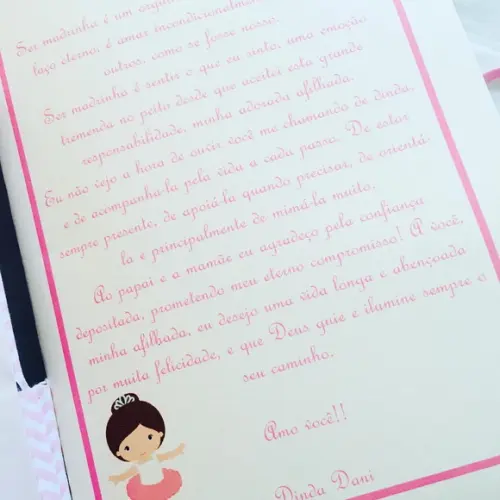 Ser madrinha é um orgulho
laço eterno, é amar incondicionalmente
outros, como se fosse nosso.
Ser madrinha é sentir o que eu sinto, uma emoção
tremenda no peito desde que aceitei esta grande
responsabilidade, minha adorada afilhada.
Eu não vejo a hora de ouvir você me chamando de dinda,
e de acompanha-la pela vida a cada passo. De estar
sempre presente, de apoiá-la quando precisar, de orientá-
la e principalmente de mimá-la muito.
Ao papai e a mamãe eu agradeço pela confiança
depositada, prometendo meu eterno compromisso! A você,
minha afilhada, eu desejo uma vida longa e abençoada
por muita felicidade, e que Deus guie e ilumine sempre o
seu caminho.
Amo você!!
Dinda Dani